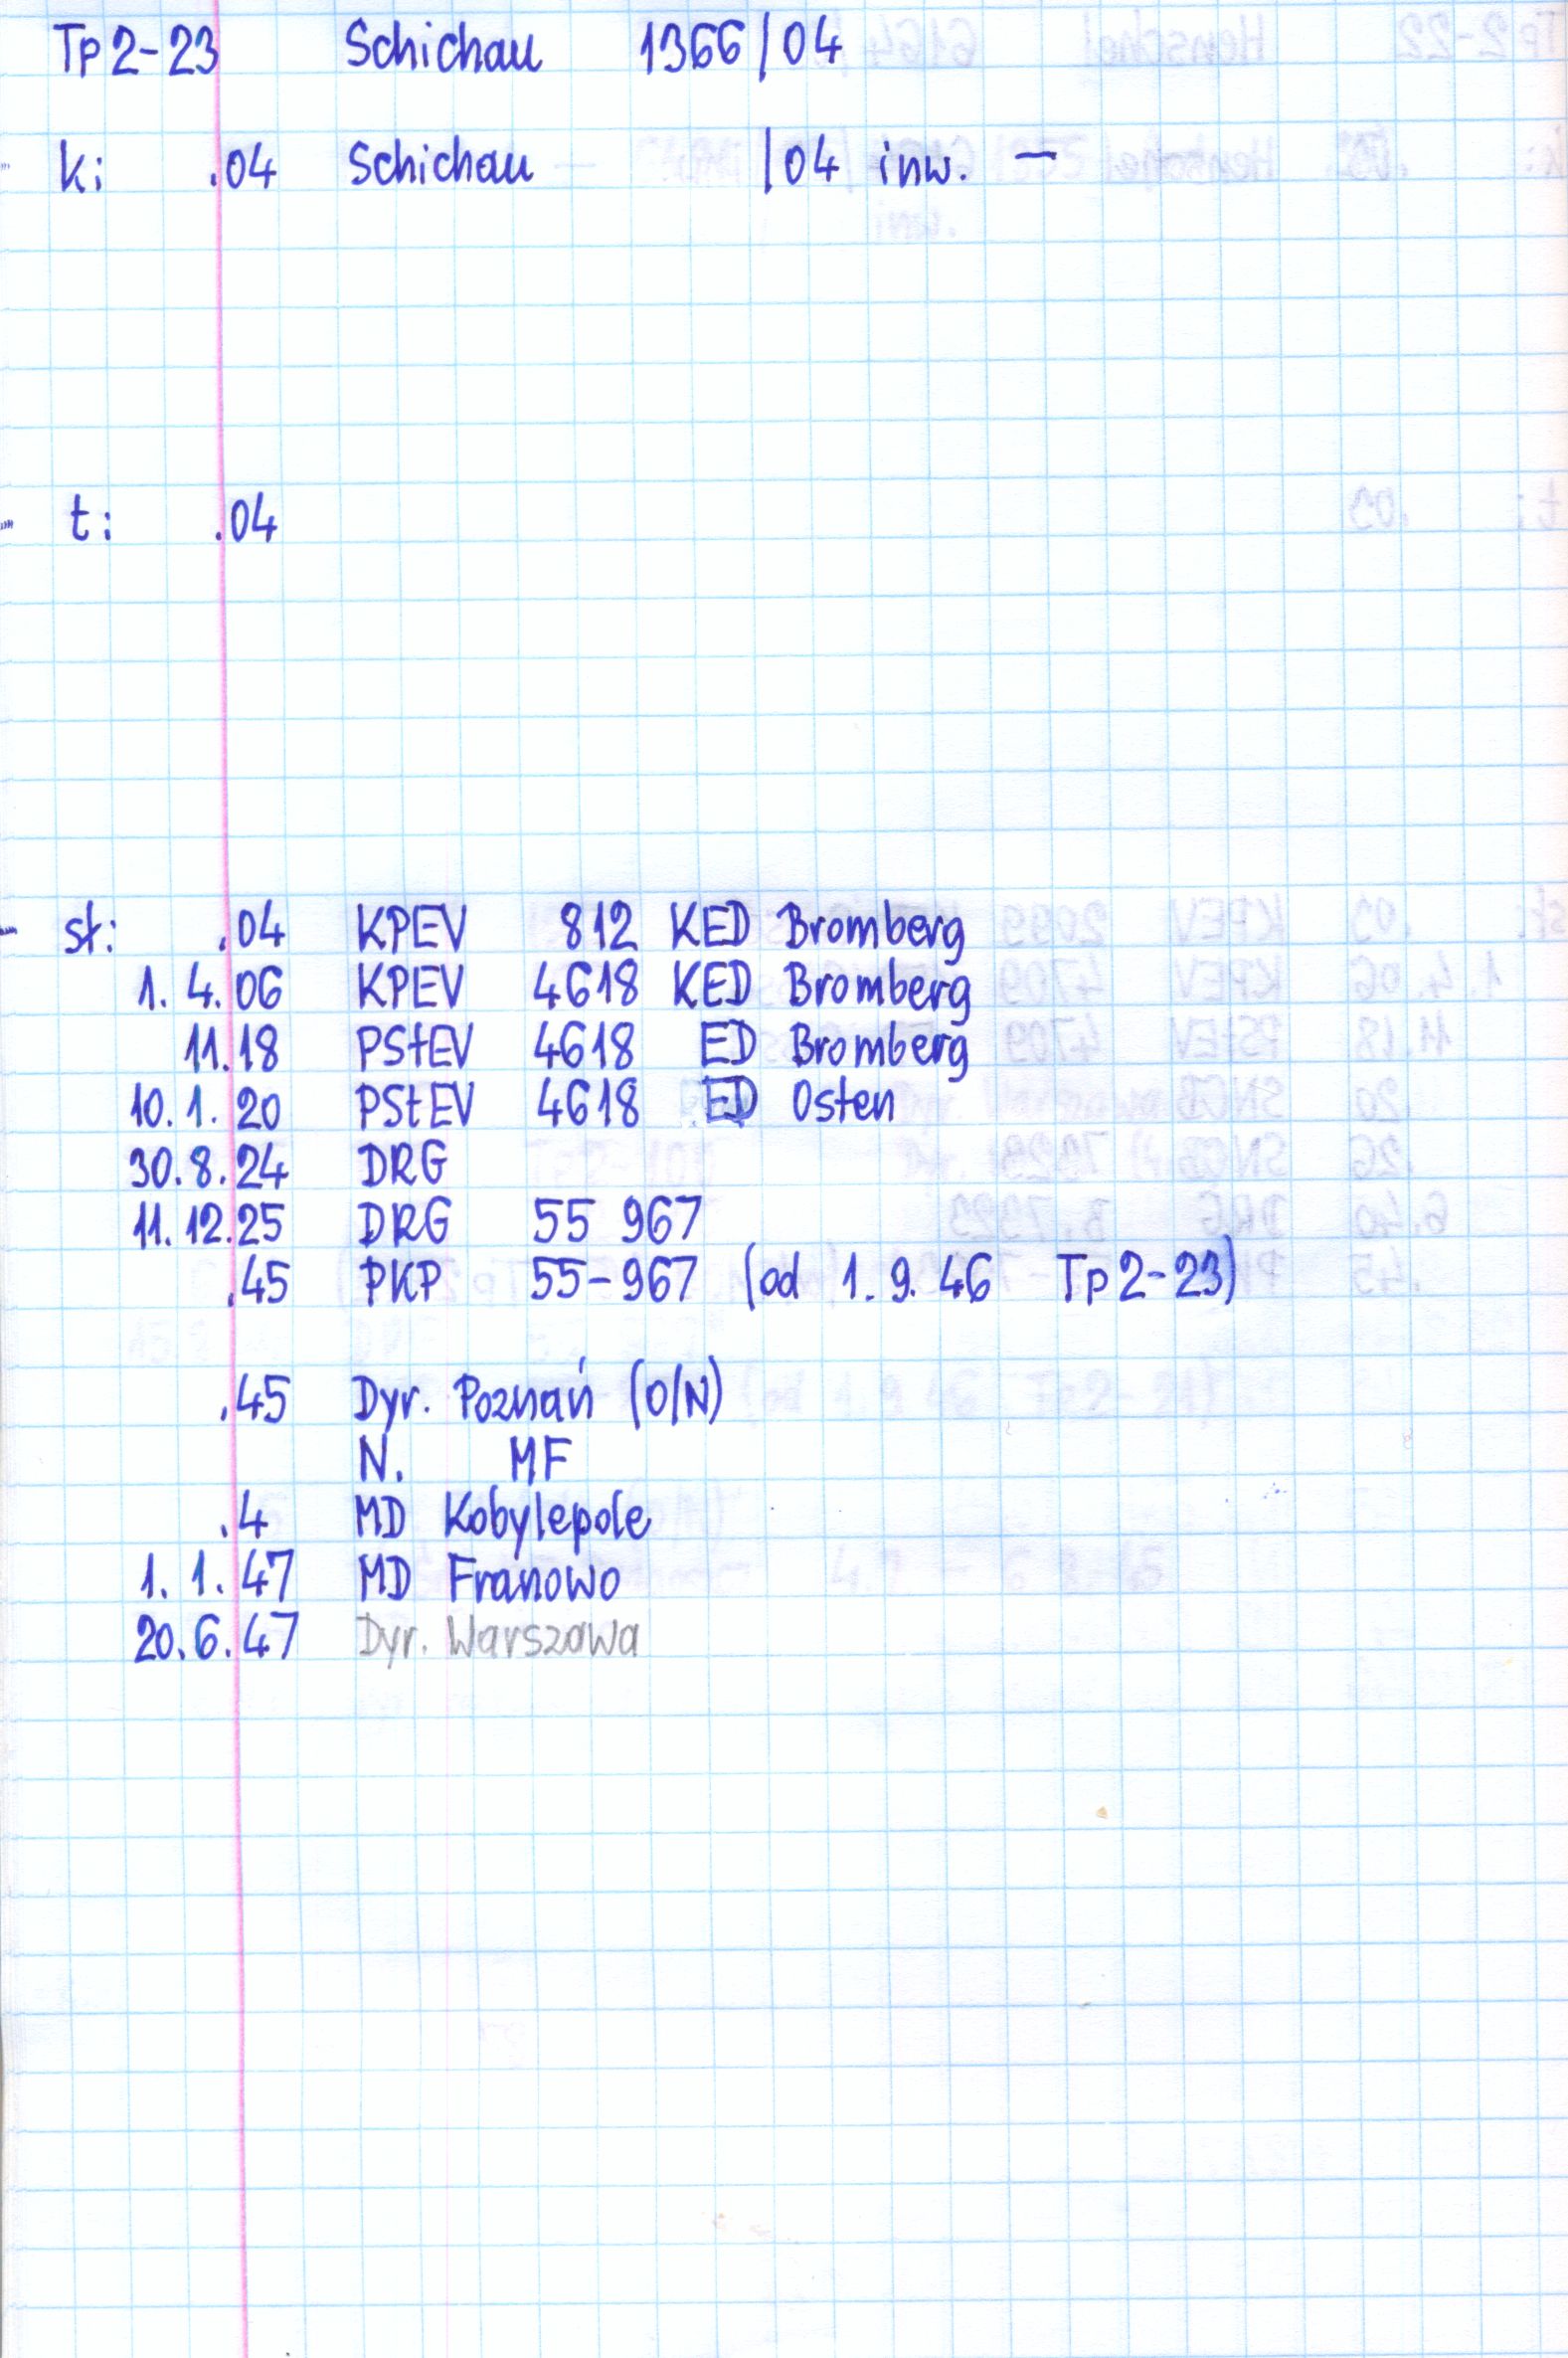 Tp2-23 Schichau 1366/04
k: .04 Schichau /04 inw. —
t: .04
st: .04 KPEV 812 KED Bromberg
1. 4. 06 KPEV 4618 KED Bromberg
11.18 PStEV 4618 ED Bromberg
10. 1. 20 PStEV 4618 ED Osten
30. 8. 24 DRG
11. 12. 25 DRG 55 967
.45 PKP 55-967 (od 1. 9. 46 Tp2-23)
.45 Dyr. Poznań (O/N)
N. MF
.4 MD Kobylepole
1. 1. 47 MD Franowo
20. 6. 47 Dyr. Warszawa